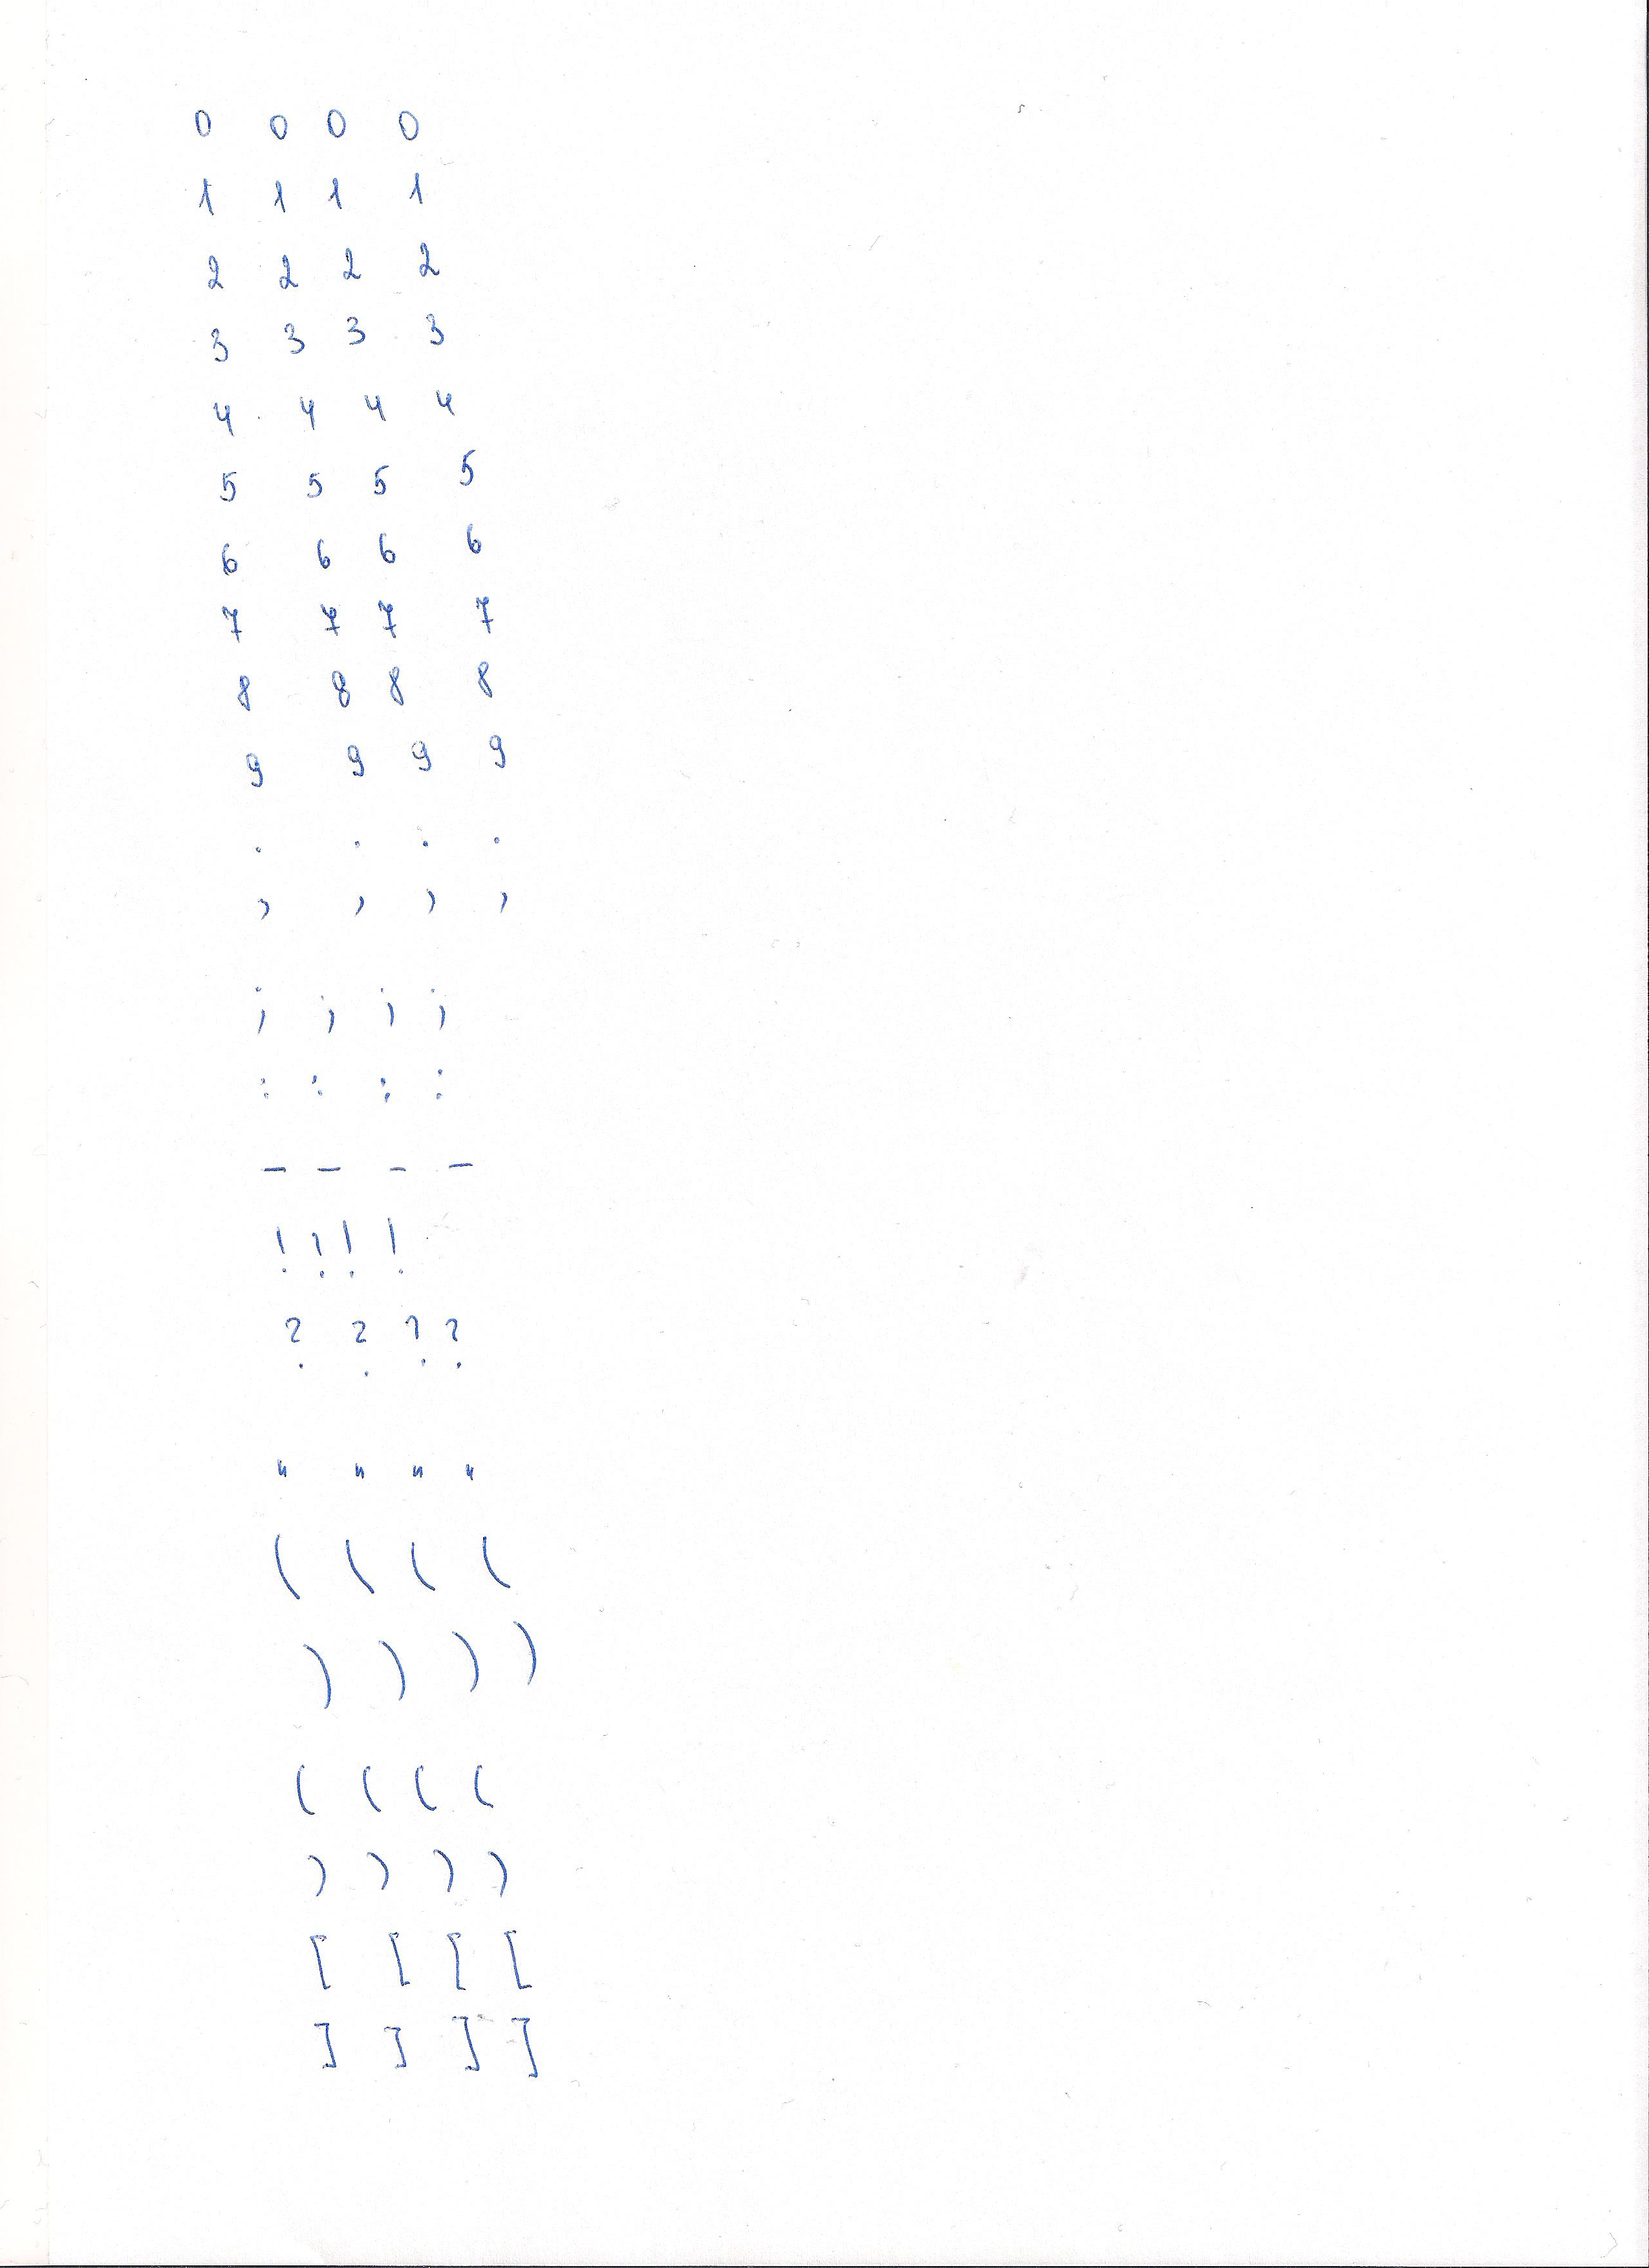 0 0 0 0
1 1 1 1
2 2 2 2
3 3 3 3
4 4 4 4
5 5 5 5
6 6 6 6
7 7 7 7
8 8 8 8
9 9 9 9
. . . .
, , , ,
; ; ; ;
: : : :
- - - -
! ! ! !
? ? ? ?
" " " "
( ( ( (
) ) ) )
( ( ( (
) ) ) )
[ [ [ [
] ] ] ]